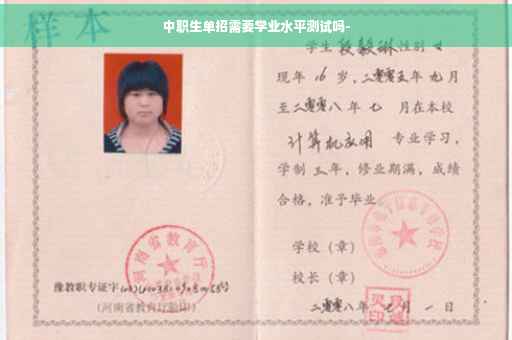 中职生单招需要学业水平测试吗-
样本
学生段毅琳性别女
现年16岁，二零零五年九月
至二零零八年七月在本校
计算机应用 专业学习，
学制三年，修业期满，成绩
合格，准予毕业
学校（章）
校长（章）
二零零八年七月一日
河南省教育厅
豫教职专证字
(河南省教育厅验印)